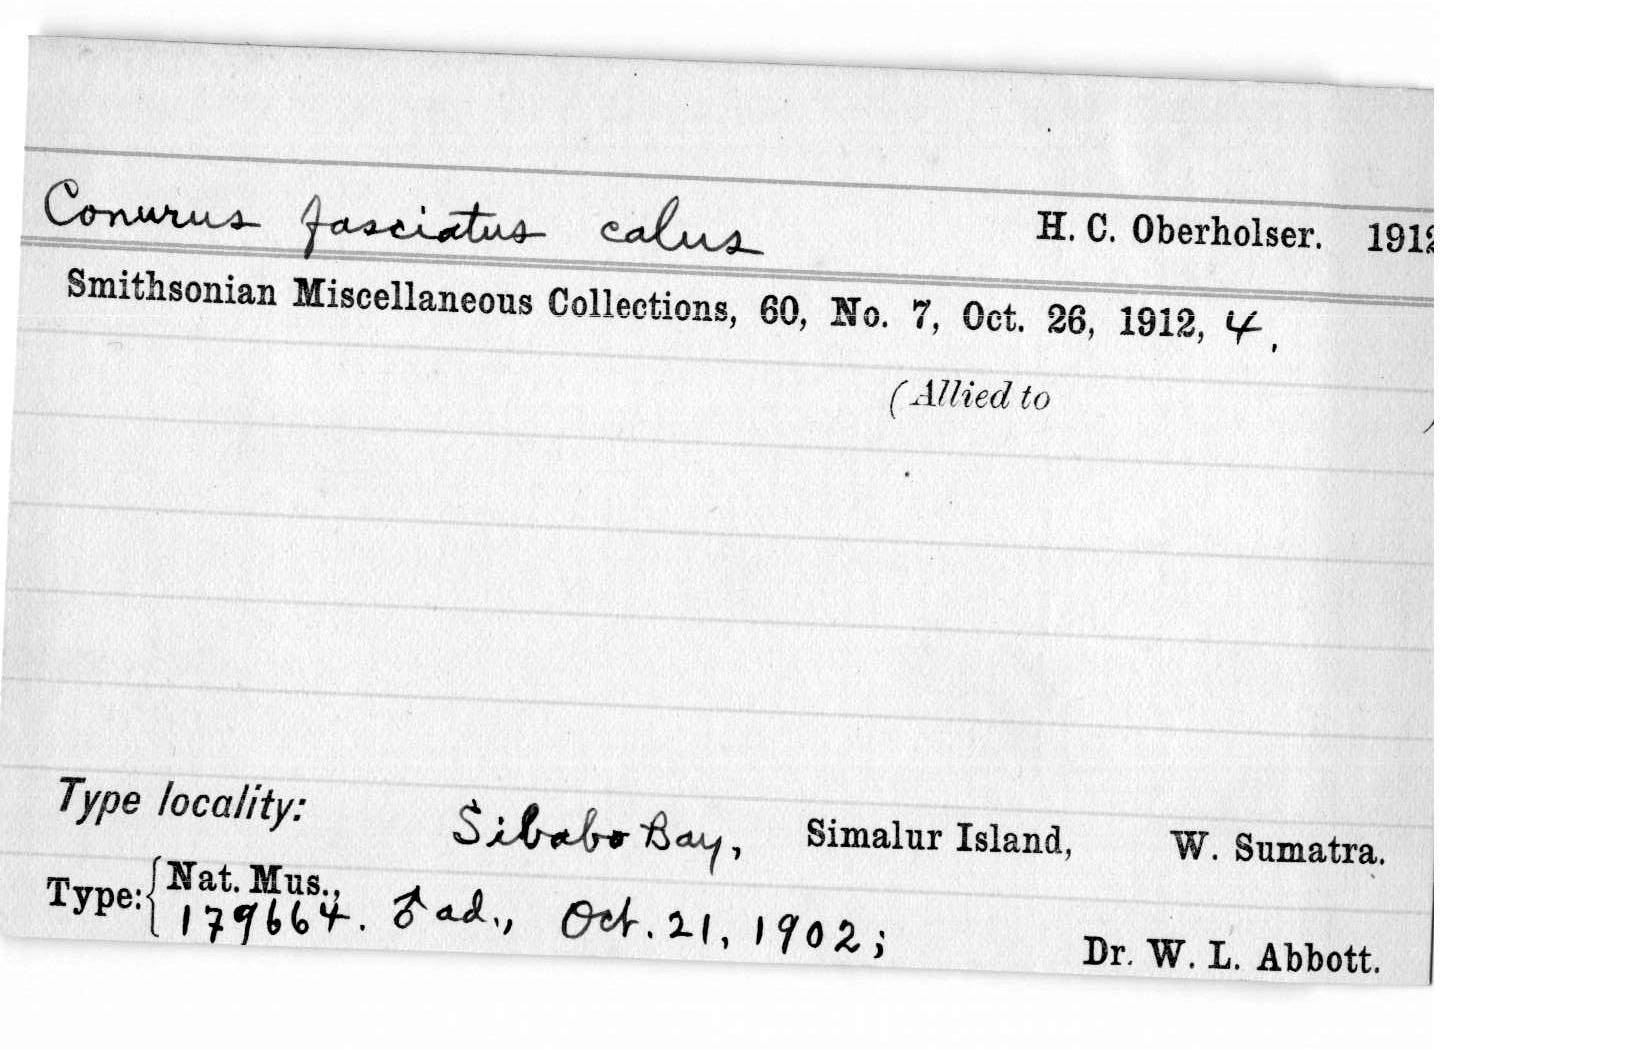 Conurus fasciatus calus H. C. Oberholser. 1912
Smithsonian Miscellaneous Collections, 60, No. 7, Oct. 26, 1912, 4.
(Allied to )
Type locality: Sibabo Bay, Simalur Island, W. Sumatra.
Type: { Nat. Mus.,
179664. ♂ ad., Oct. 21, 1902; Dr. W. L. Abbott.